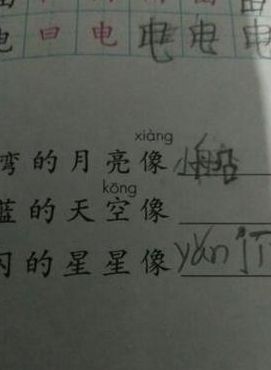 电 日 电 电 电 电
xiàng
弯的月亮像小船
kōng
蓝的天空像
闪的星星像yǎn jīn